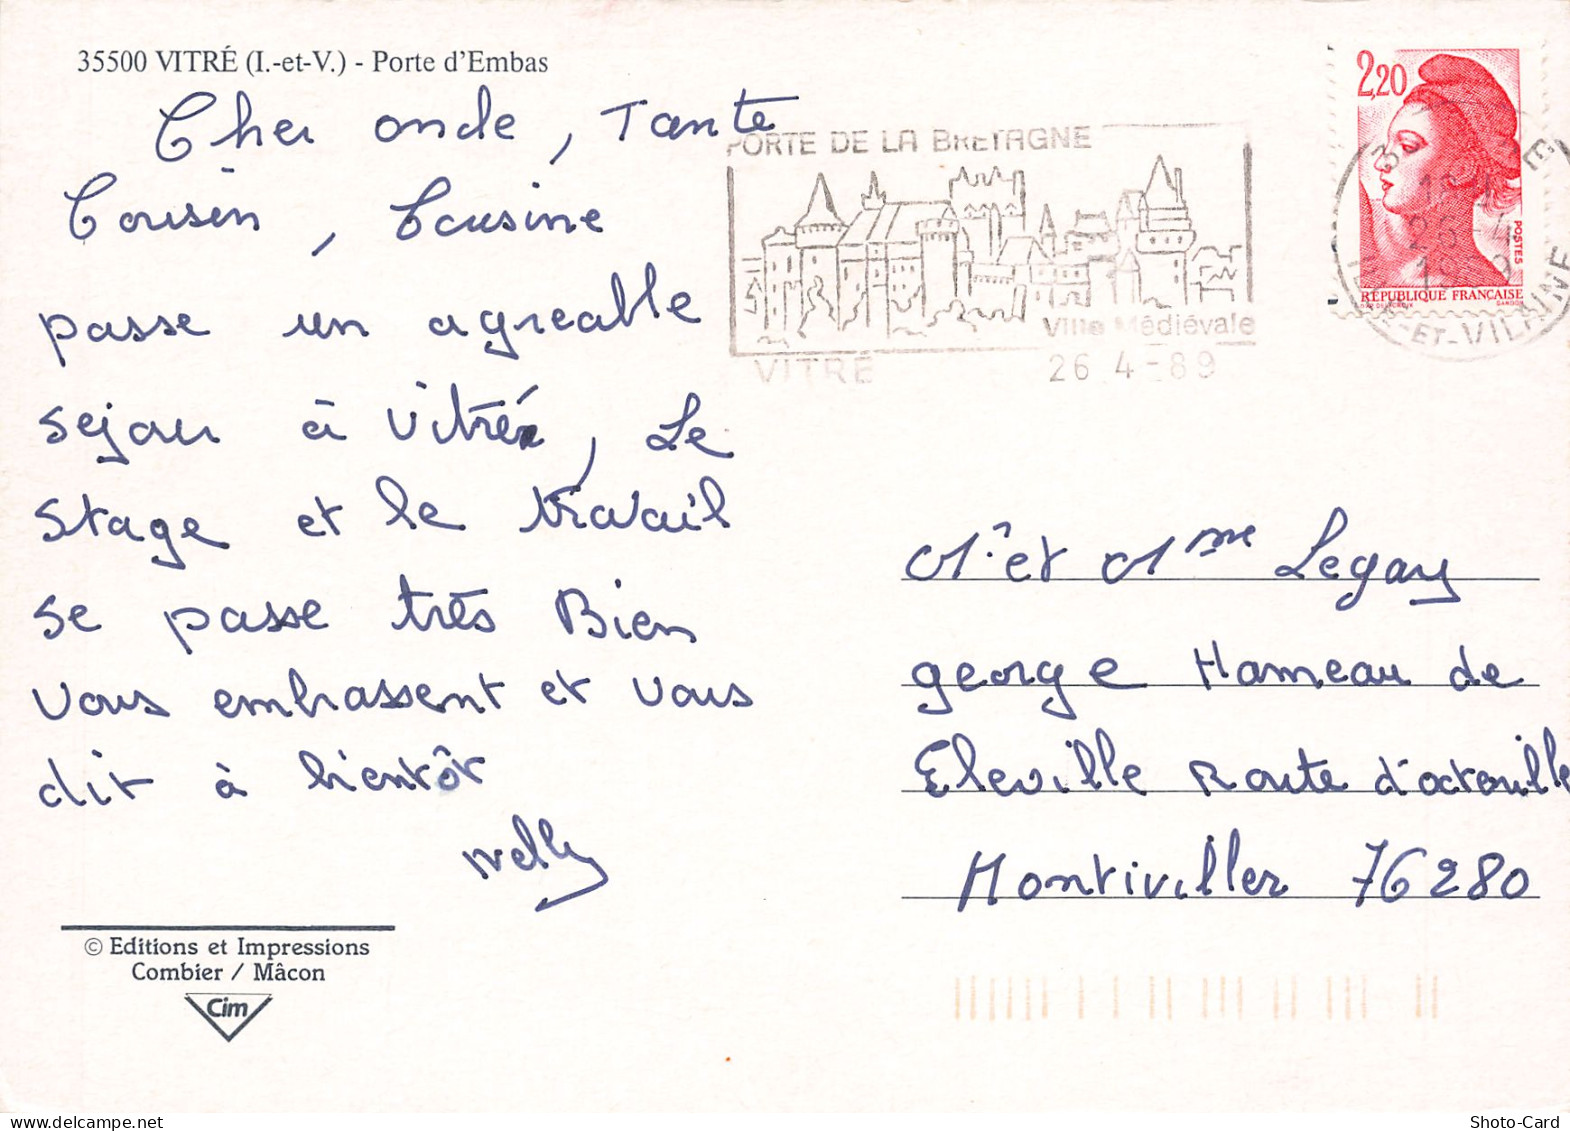 35500 VITRÉ (I.-et-V.) - Porte d'Embas
Cher oncle, Tante
Cousin, Cousine
passe un agreable
sejour à Vitré, Le
stage et le travail
se passe très Bien
Vous embrassent et vous
dit à bientôt
© Editions et Impressions
Combier / Mâcon
Cim
PORTE DE LA BRETAGNE
Ville Médiévale
VITRÉ 26 4 -89
2,20
POSTES
RÉPUBLIQUE FRANÇAISE
ET-VILAINE
Mr et Mme Legay
george Hameau de
Eleville Route d'octeville
Montiviller 76280
Shoto-Card